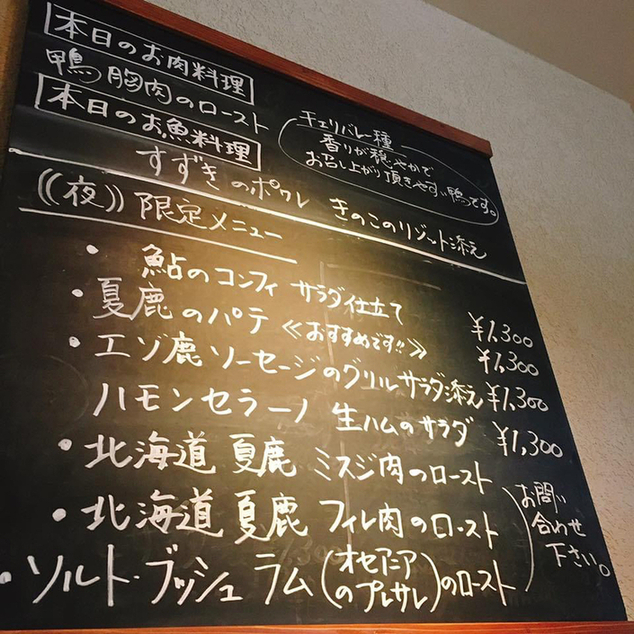 本日のお肉料理
鴨胸肉のロースト
チェリバレー種
香りが穏やかで
お召し上がり頂きやすい鴨です。
本日のお魚料理
すずきのポワレ きのこのリゾット添え
((夜)) 限定メニュー
・鮎のコンフィ サラダ仕立て ¥1,300
・夏鹿のパテ ≪おすすめです!!≫ ¥1,300
・エゾ鹿ソーセージのグリルサラダ添え ¥1,300
ハモンセラーノ 生ハムのサラダ ¥1,300
・北海道 夏鹿 ミスジ肉のロースト
・北海道夏鹿 フィレ肉のロースト
・ソルト・ブッシュ ラム(オセアニアのプレサレ)のロースト
お問い
合わせ
下さい。